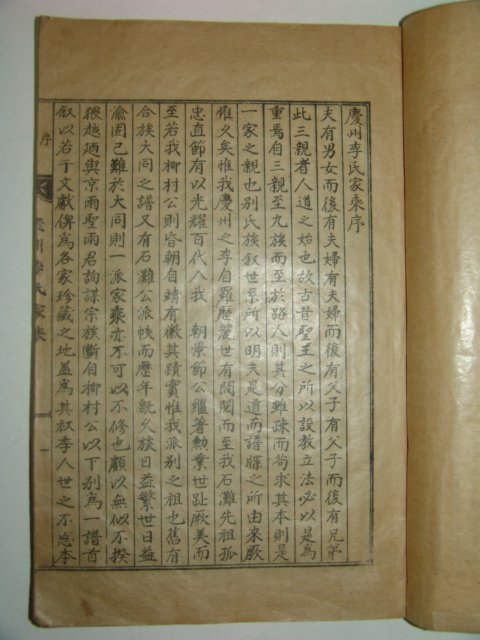 慶州李氏家乘序
夫有男女而後有夫婦有夫婦而後有父子有父子而後有兄弟
此三親者人道之始也故古昔聖王之所以設教立法必以是爲
重焉自三親至九族而至於路人則其分雖疎而苟求其本則是
一家之親也別氏族叙世系所以明夫是道而譜牒之所由來厥
惟久矣惟我慶州之李自羅歷麗世有閥閱而至我石灘先祖孤
忠直節有以光耀百代入我 朝景節公繼著勳業世趾厥美而
至若我柳村公則昏朝自靖有徽其蹟實惟我派別之祖也舊有
合族大同之譜又有石灘公派帙而歷年旣久族日益繁世日益
渝固已難於大同則一派家乘亦不可以不修也顧以無似不揆
猥越廼與京雨聖雨君詢謀宗族斷自柳村公以下別爲一譜首
叙以若干文獻俾爲各家珍藏之地盖爲其叔季人世之不忘本
序
慶州李氏家乘
一